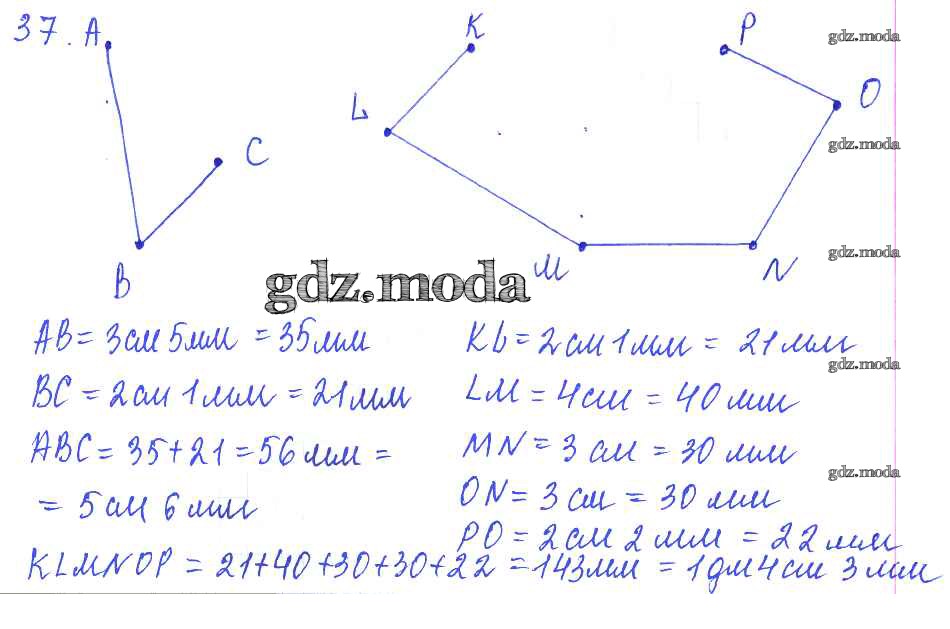 37. A
K
P
gdz.moda
L
O
C
gdz.moda
B
M
N
gdz.moda
gdz.moda
AB = 3см 5мм = 35мм
KL = 2см 1мм = 21мм
gdz.moda
BC = 2см 1мм = 21мм
LM = 4см = 40мм
ABC = 35+21 = 56мм =
MN = 3см = 30мм
gdz.moda
= 5см 6мм
ON = 3см = 30мм
PO = 2см 2мм = 22мм
KLMNOP = 21+40+30+30+22 = 143мм = 1дм 4см 3мм